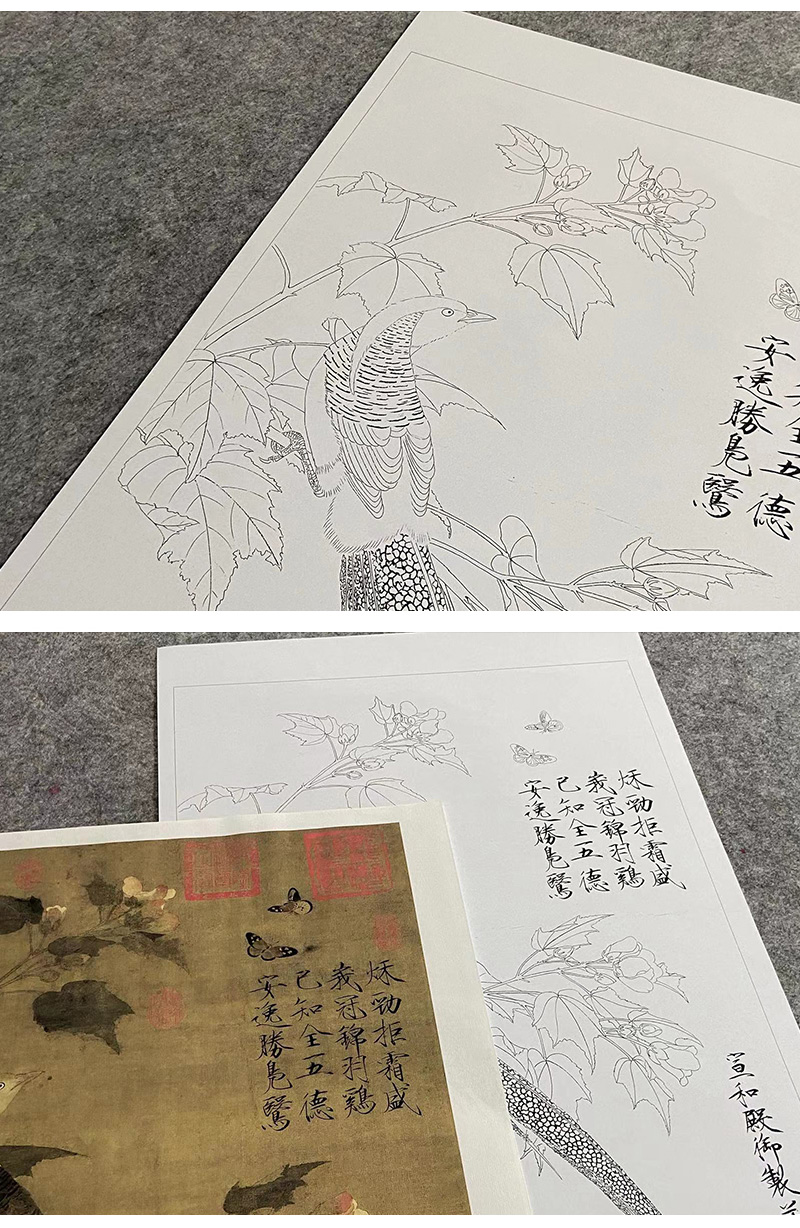 全五德
安逸勝鳧鷖
秋勁拒霜盛
峩冠錦羽雞
已知全五德
安逸勝鳧鷖
宣和殿御製
秋勁拒霜盛
峩冠錦羽雞
已知全五德
安逸勝鳧鷖